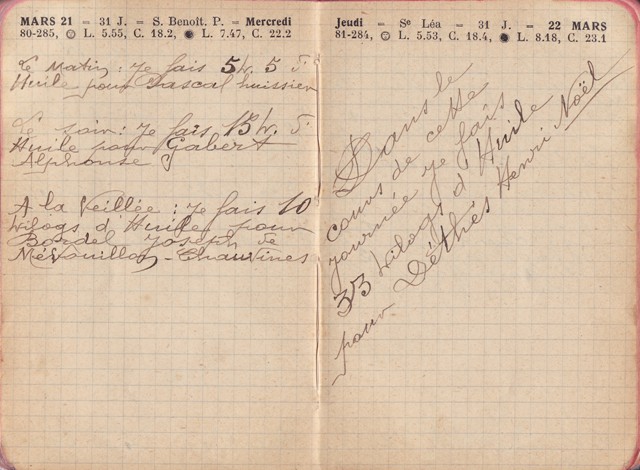 MARS 21 = 31 J. = S. Benoît, P. = Mercredi
80-285, L. 5.55, C. 18.2, L. 7.47, C. 22.2
Le Matin : Je fais 5 k. 5 d'
Huile pour Pascal huissier
Le soir : Je fais 13 k. d'
Huile pour Gabert
Alphonse
A la Veillée : Je fais 10
kilogs d'Huile pour
Bordel Joseph de
Mévouillon-Chauvines
Jeudi = Se Léa = 31 J. = 22 MARS
81-284, L. 5.53, C. 18.4, L. 8.18, C. 23.1
Dans le
cours de cette
journée je fais
33 kilogs d'Huile
pour Déthès Henri Noël